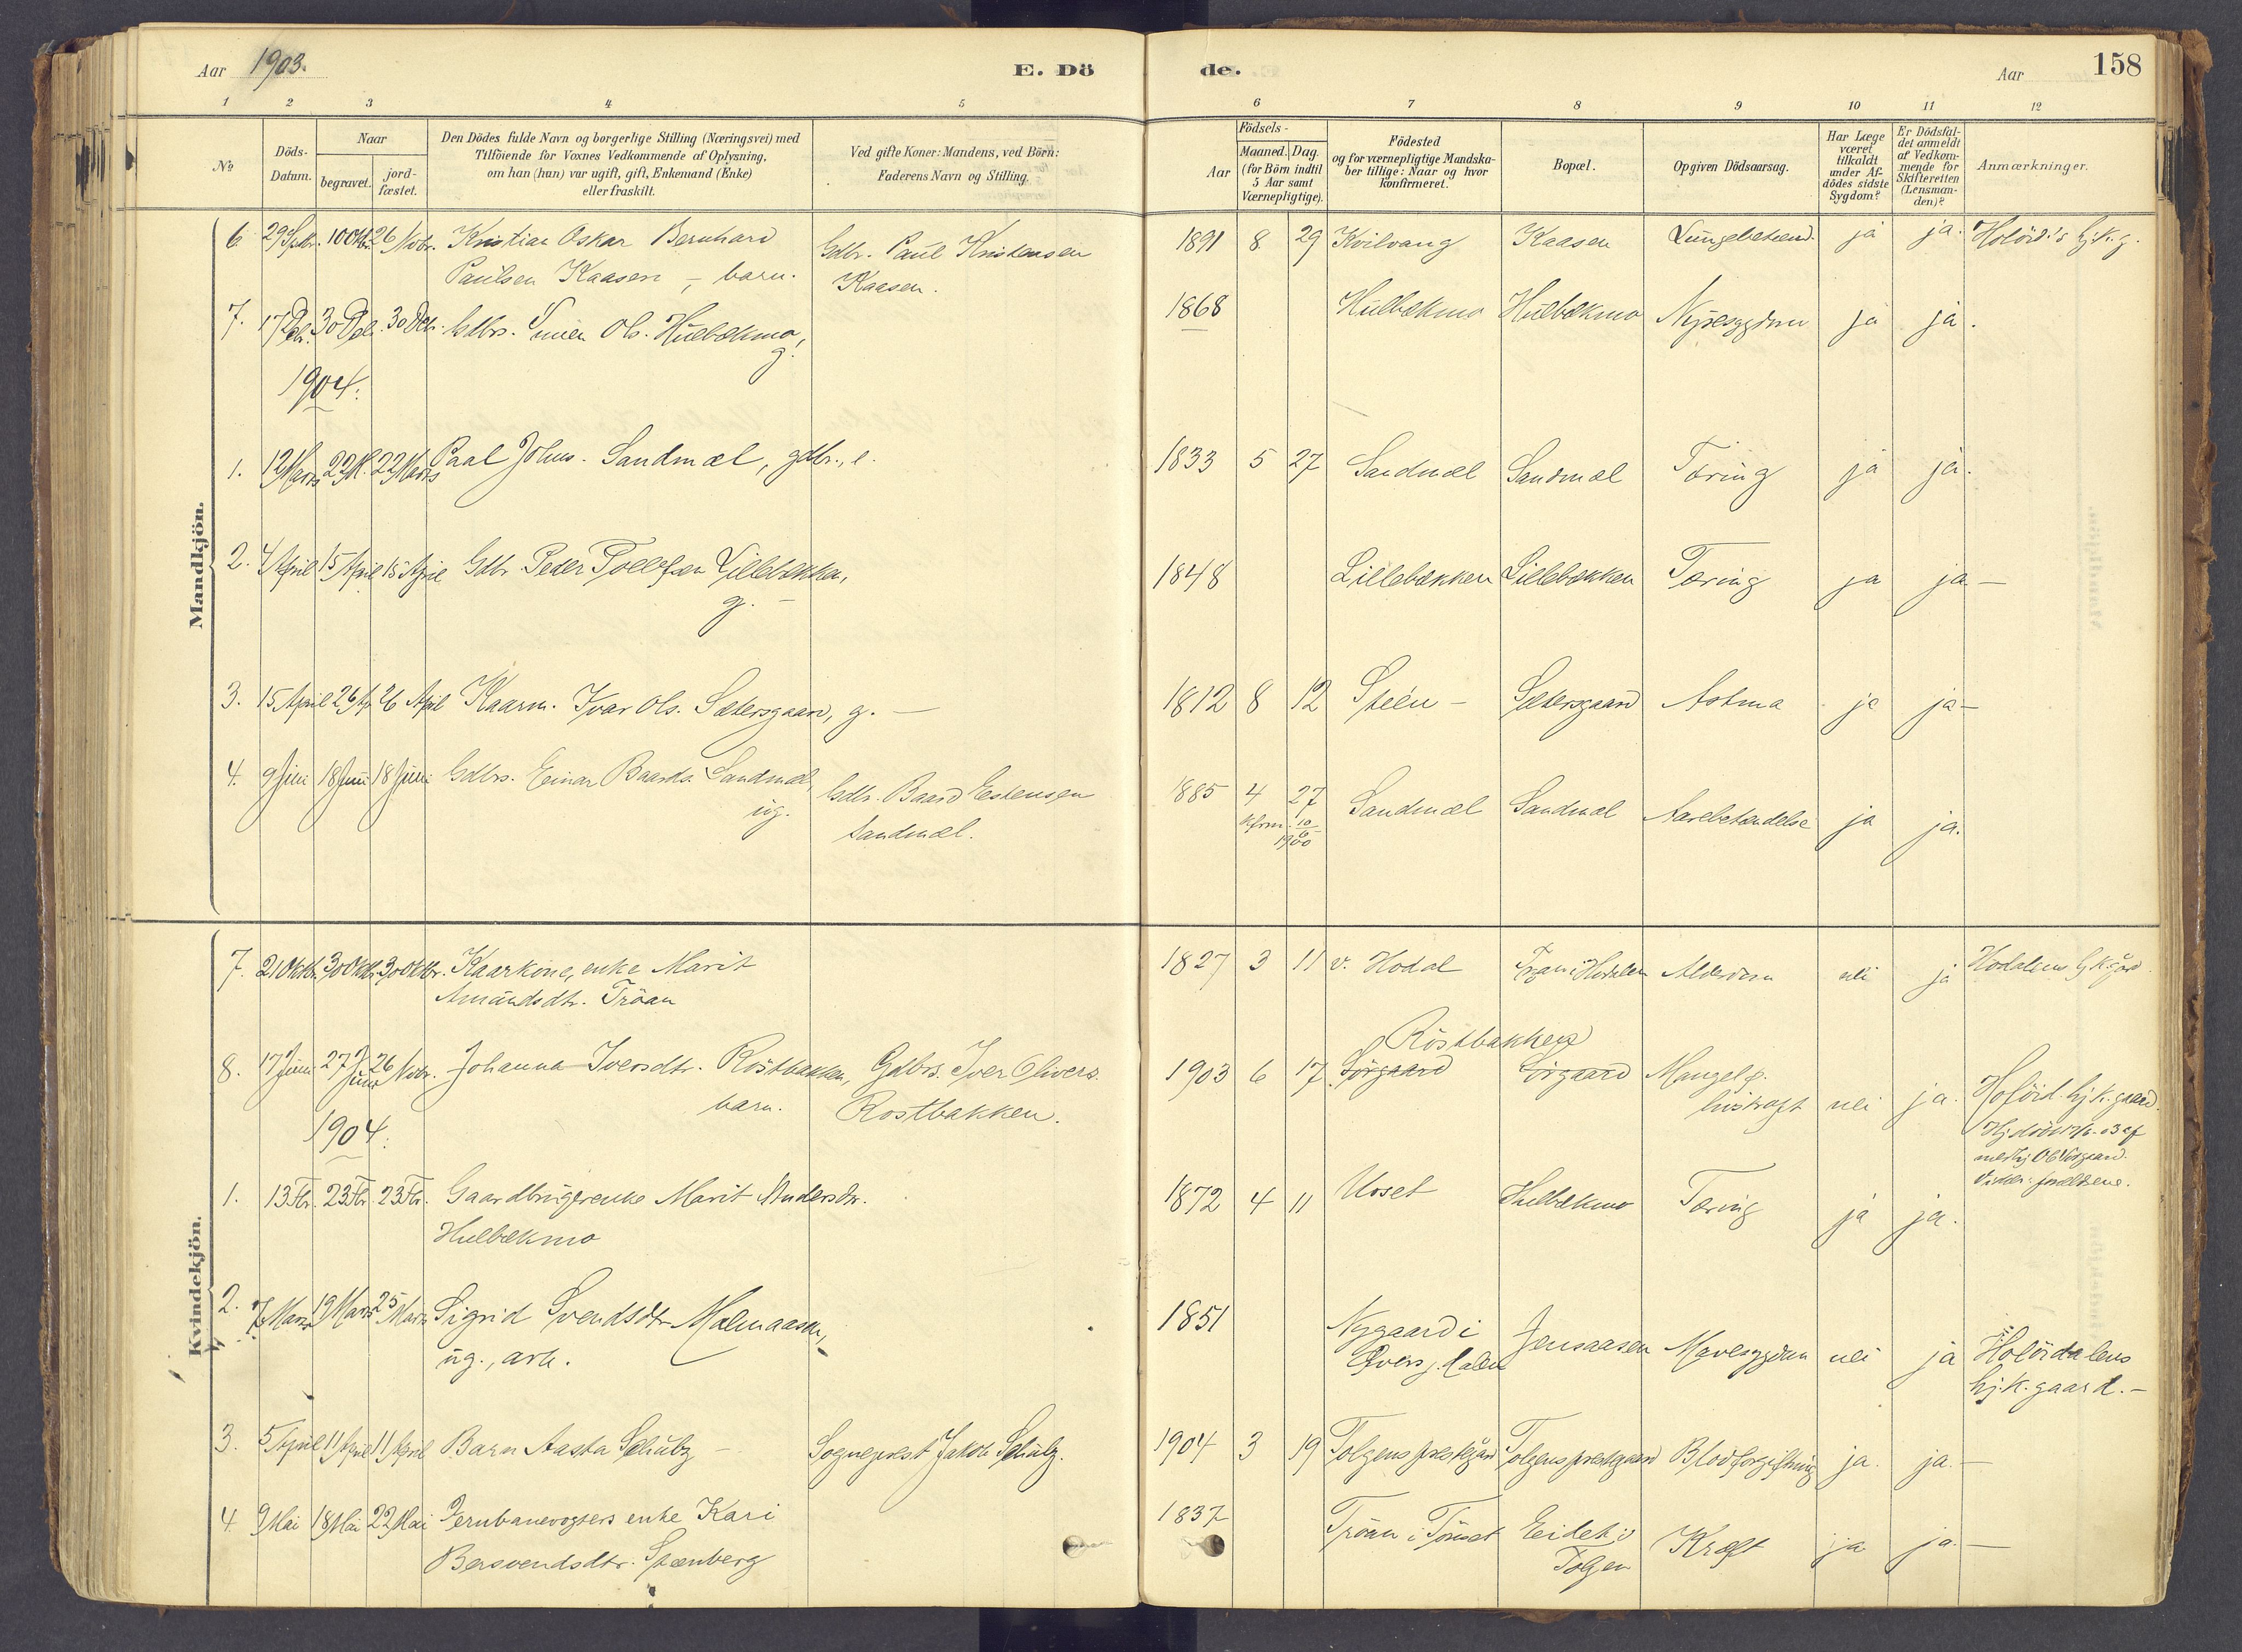 Aar 1903.
E. Dö
de.
Aar
158
1 2 3 4 5 6 7 8 9 10 11 12
No
Döds-
Datum.
Naar
begravet.
jord-
fæstet.
Den Dödes fulde Navn og borgerlige Stilling (Næringsvei) med
Tilföiende for Voxnes Vedkommende af Oplysning,
om han (hun) var ugift, gift, Enkemand (Enke)
eller fraskilt.
Ved gifte Koner: Mandens, ved Börn:
Faderens Navn og Stilling.
Aar
Födsels-
Maaned. Dag.
(for Börn indtil
5 Aar samt
Værnepligtige).
Födested
og for værnepligtige Mandska-
ber tillige: Naar og hvor
konfirmeret.
Bopæl.
Opgiven Dödsaarsag.
Har Læge
været
tilkaldt
under Af-
dödes sidste
Sygdom?
Er Dödsfal-
det anmeldt
af Vedkom-
mende for
Skifteretten
(Lensman-
den)?
Anmærkninger.
Mandkjön.
6 29 Septbr. 10 Oktbr. 26 Novbr. Kristian Oskar Bernhard Gdbr. Paul Kristensen 1891 8 29 Kvilvang Kaasen Lungebetænd. ja ja. Holöid.s hj.k.g.
Paulsen Kaasen, – barn. Kaasen.
7. 17 Dcb. 30 Dcb. 30 Dcb. Gdbr. Simen Ols. Hulbækmo, 1868 Hulbækmo Hulbækmo Nyresygdom ja ja.
g.
1904.
1. 12 Marts 22 M. 22 Marts Paal Johns. Sandmæl, gdbr., e. 1833 5 27 Sandmæl Sandmæl Tæring ja ja.
2. 4 April 15 April 15 April Gdbr. Peder Tollefsen Lillebækken, 1848 Lillebækken Lillebækken Tæring ja ja –
g. –
3. 15 April 26 Ap 26 April Kaarm. Ivar Ols. Sætersgaard, g. – 1812 8 12 Steen – Sætersgaard Astma ja ja –
4. 9 Juni 18 Juni 18 Juni Gdbrs. Einar Baards. Sandmæl, Gdbr. Baard Estensen 1885 4 27 Sandmæl Sandmæl Aarebetændelse ja ja.
ug. Sandmæl. Kfrm. 10/6 1900
Kvindekjön.
7. 21 Oktbr. 30 Oktbr. 30 Oktbr. Kaarkone, enke Marit 1827 3 11 v. Hodal Tröan i Hodalen Alderdom nei ja Hodalens hj.k.gård
Amundsdtr. Tröan
Röstbakken
8. 17 Juni 27 Juni 26 Novbr. Johanna Iversdtr. Röstbakken, Gdbrs. Iver Olivers. 1903 6 17 Sörgaard Sörgaard Mangel p. nei ja. Holöid. hj.k.gaard.
barn. Röstbakken. livskraft
1904.
forældrene.
1. 13 Fbr. 23 Fbr. 23 Fbr. Gaardbrugerenke Marit Andersdtr. 1872 4 11 Uoset Hulbækmo Tæring ja ja.
Hulbækmo
2. 7 Marts 19 Marts 25 Marts Sigrid Svendsdtr. Malmaasen, 1851 Nygaard i Jensaasen Mavesygdom nei ja Holöidalens
ug., arb. hj.k.gaard. –
3. 5 April 11 April 11 April Barn Aasta Schulz – Sogneprest Jakob Schulz. 1904 3 19 Tolgens prestegård Tolgens prestegaard Blodforgiftning ja. ja. –
4. 9 Mai 18 Mai 22 Mai Jernbanevogters enke Kari 1837 Tröan i Tönset Eidet i Kræft ja ja. –
Bersvendsdtr. Stænberg Tolgen